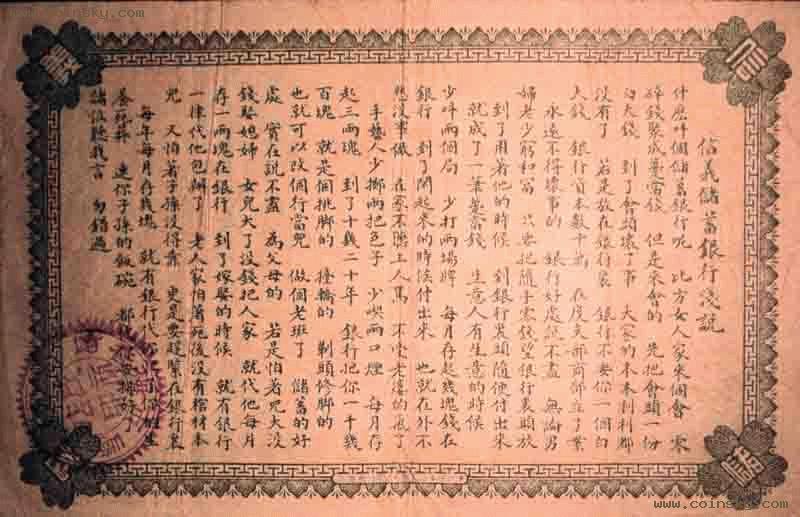 信義儲蓄銀行淺說
什麽呌個儲蓄銀行呢 比方女人家來個會 零
碎錢聚成躉當錢 但是來會的 先把會頭一份
白大錢 到了會頭壞了事 大家的本本利利都
沒有了 若是放在銀行裏 銀行不要你一個白
大錢 銀行資本數十萬 在度支部商部立了案
永遠不得壞事的 銀行好處說不盡 無論男
婦老少窮和富 只要把隨手零錢望銀行裏頭放
到了用着他的時候 到銀行裏頭隨便付出來
就成了一筆躉當錢 生意人有生意的時候
少呌兩個局 少打兩場牌 每月存起幾塊錢在
銀行 到了閒起來的時候付出來 也就在外不
愁沒事做 在家不愁上人罵 不受老婆的氣了
手藝人少擲兩把色子 少喫兩口煙 每月存
起三兩塊 到了十幾二十年 銀行把你一千幾
百塊 就是個挑脚的 擡轎的 剃頭修脚的
也就可以改個行當兒 做個老班了 儲蓄的好
處 實在說不盡 為父母的 若是怕着兒大沒
錢娶媳婦 女兒大了沒錢把人家 就代他每月
存一兩塊在銀行 到了嫁娶的時候 就有銀行
一律代他包辦了 老人家怕着死後沒有棺材本
兒 又怕着子孫沒得靠 更是要趕緊在銀行裏
每年每月存幾塊 就有銀行代 了你的生
養死葬 連你子孫的飯碗 都 安排好了
諸位聽我言 勿錯過
義
儲
www.coinsky.com
www.coinsky.com
www.coinsky.com
www.coinsky.com